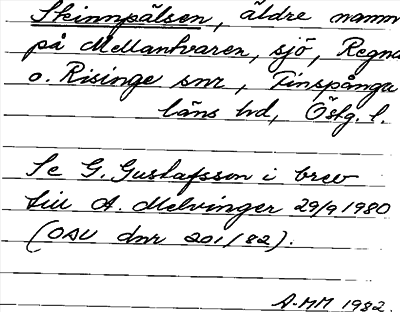 Skinnpälsen, äldre namn
på Mellantvaren, sjö, Regna
o. Risinge snr, Finspånga
läns hd, Östg. l.
Se G. Gustafsson i brev
till A. Melvinger 29/9 1980
(OAU dnr 201/82).
A-MM 1982.